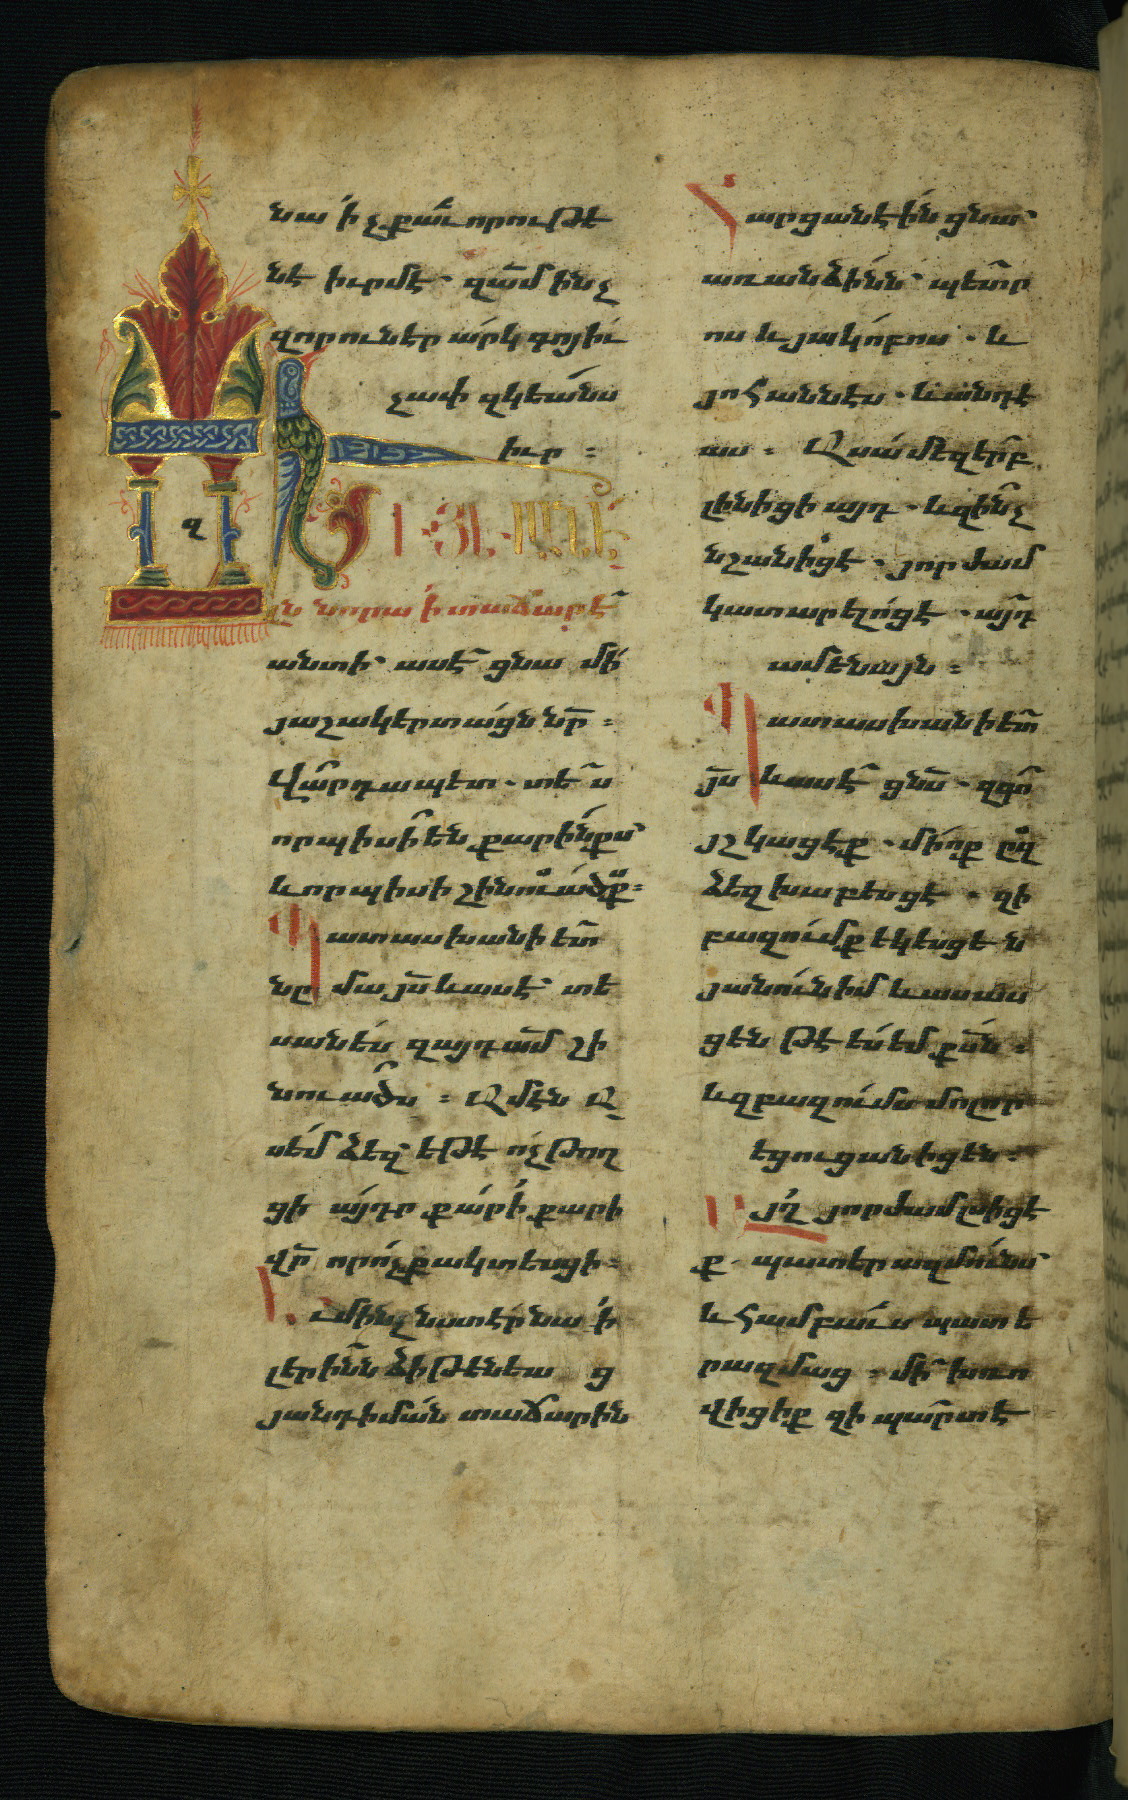 նա ի չքաւորութե
նէ իւրմէ՝ զամ ինչ
զոր ունէր արկ զոյիւ
չափ զկեանս
իւր ։
զ
Ի ՅԵԼԱՆԵ
լն նորա ի տաճարէ
անտի՝ ասէ ցնա մի
յաշակերտացն նր ։
Վարդապետ . տե՛ս
որպիսի են քարինքս՝
և որպիսի շինուածք ։
Պատասխանի ետ
նը մա յս և ասէ՝ տե
սանես զայդ ամ շի
նուածս ։ Ամէն ա
սեմ ձեզ՝ եթէ ոչ թող
ցի այդր քար ի քարի
վր որ ոչ քակտեսցի ։
Եւ մինչ նստէր նա ի
լերինն ձիթենեա ց
յանդիման տաճարին
Հարցանէին ցնա՝
առանձինն՝ պետր
ոս և յակովբոս . և
յոհաննէս . և անդէ
աս ։ Ասա մեզ երբ
լինիցի այդ . և զինչ
նշանիցէ . յորժամ
կատարելոցէ . այդ
ամենայն ։
Պատասխանի ետ
յս և ասէ ցնս . զգոյ
շ կացէք . մի ոք ըզ
ձեզ խաբեսցէ . զի
բազումք եկեսցե ն
յանուն իմ և ասաս
ցեն թէ ես եմ քսն ։
և զբազումս մոլոր
եցուցանիցեն ։
Այղ յորժամ լսիցէ
ք պատերազմունս՝
և համբաւս պատե
րազմաց . մի խռո
վիցիք զի պարտ է